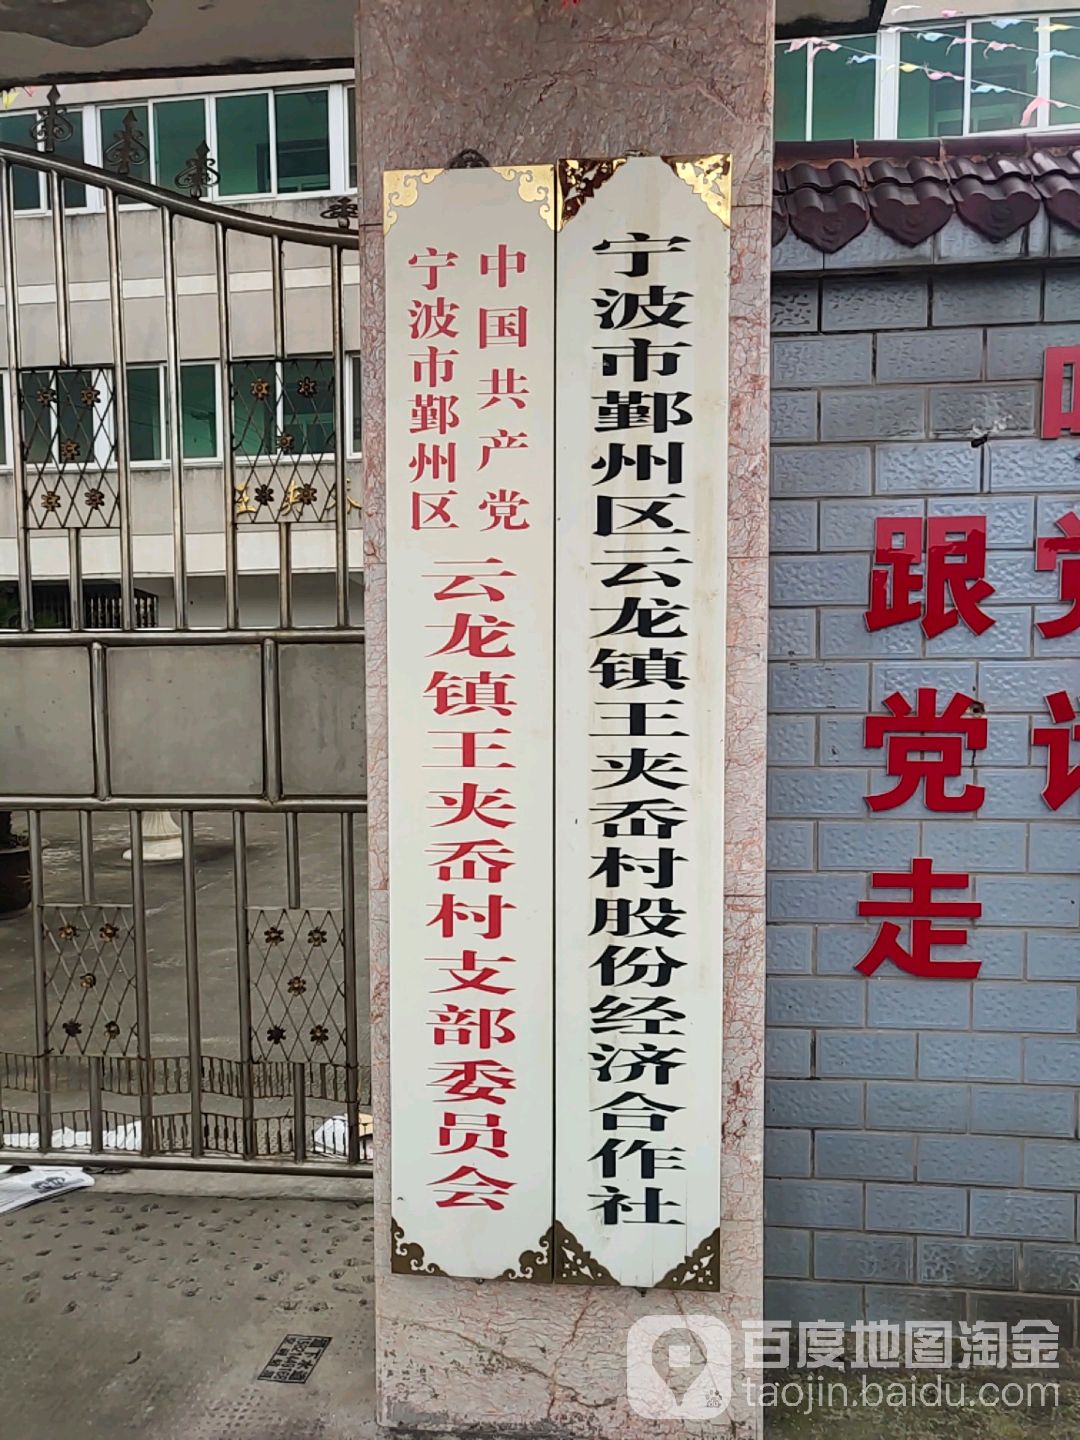 中国共产党
宁波市鄞州区
云龙镇王夹岙村支部委员会
宁波市鄞州区云龙镇王夹岙村股份经济合作社
跟党走
百度地图淘金
taojin.baidu.com